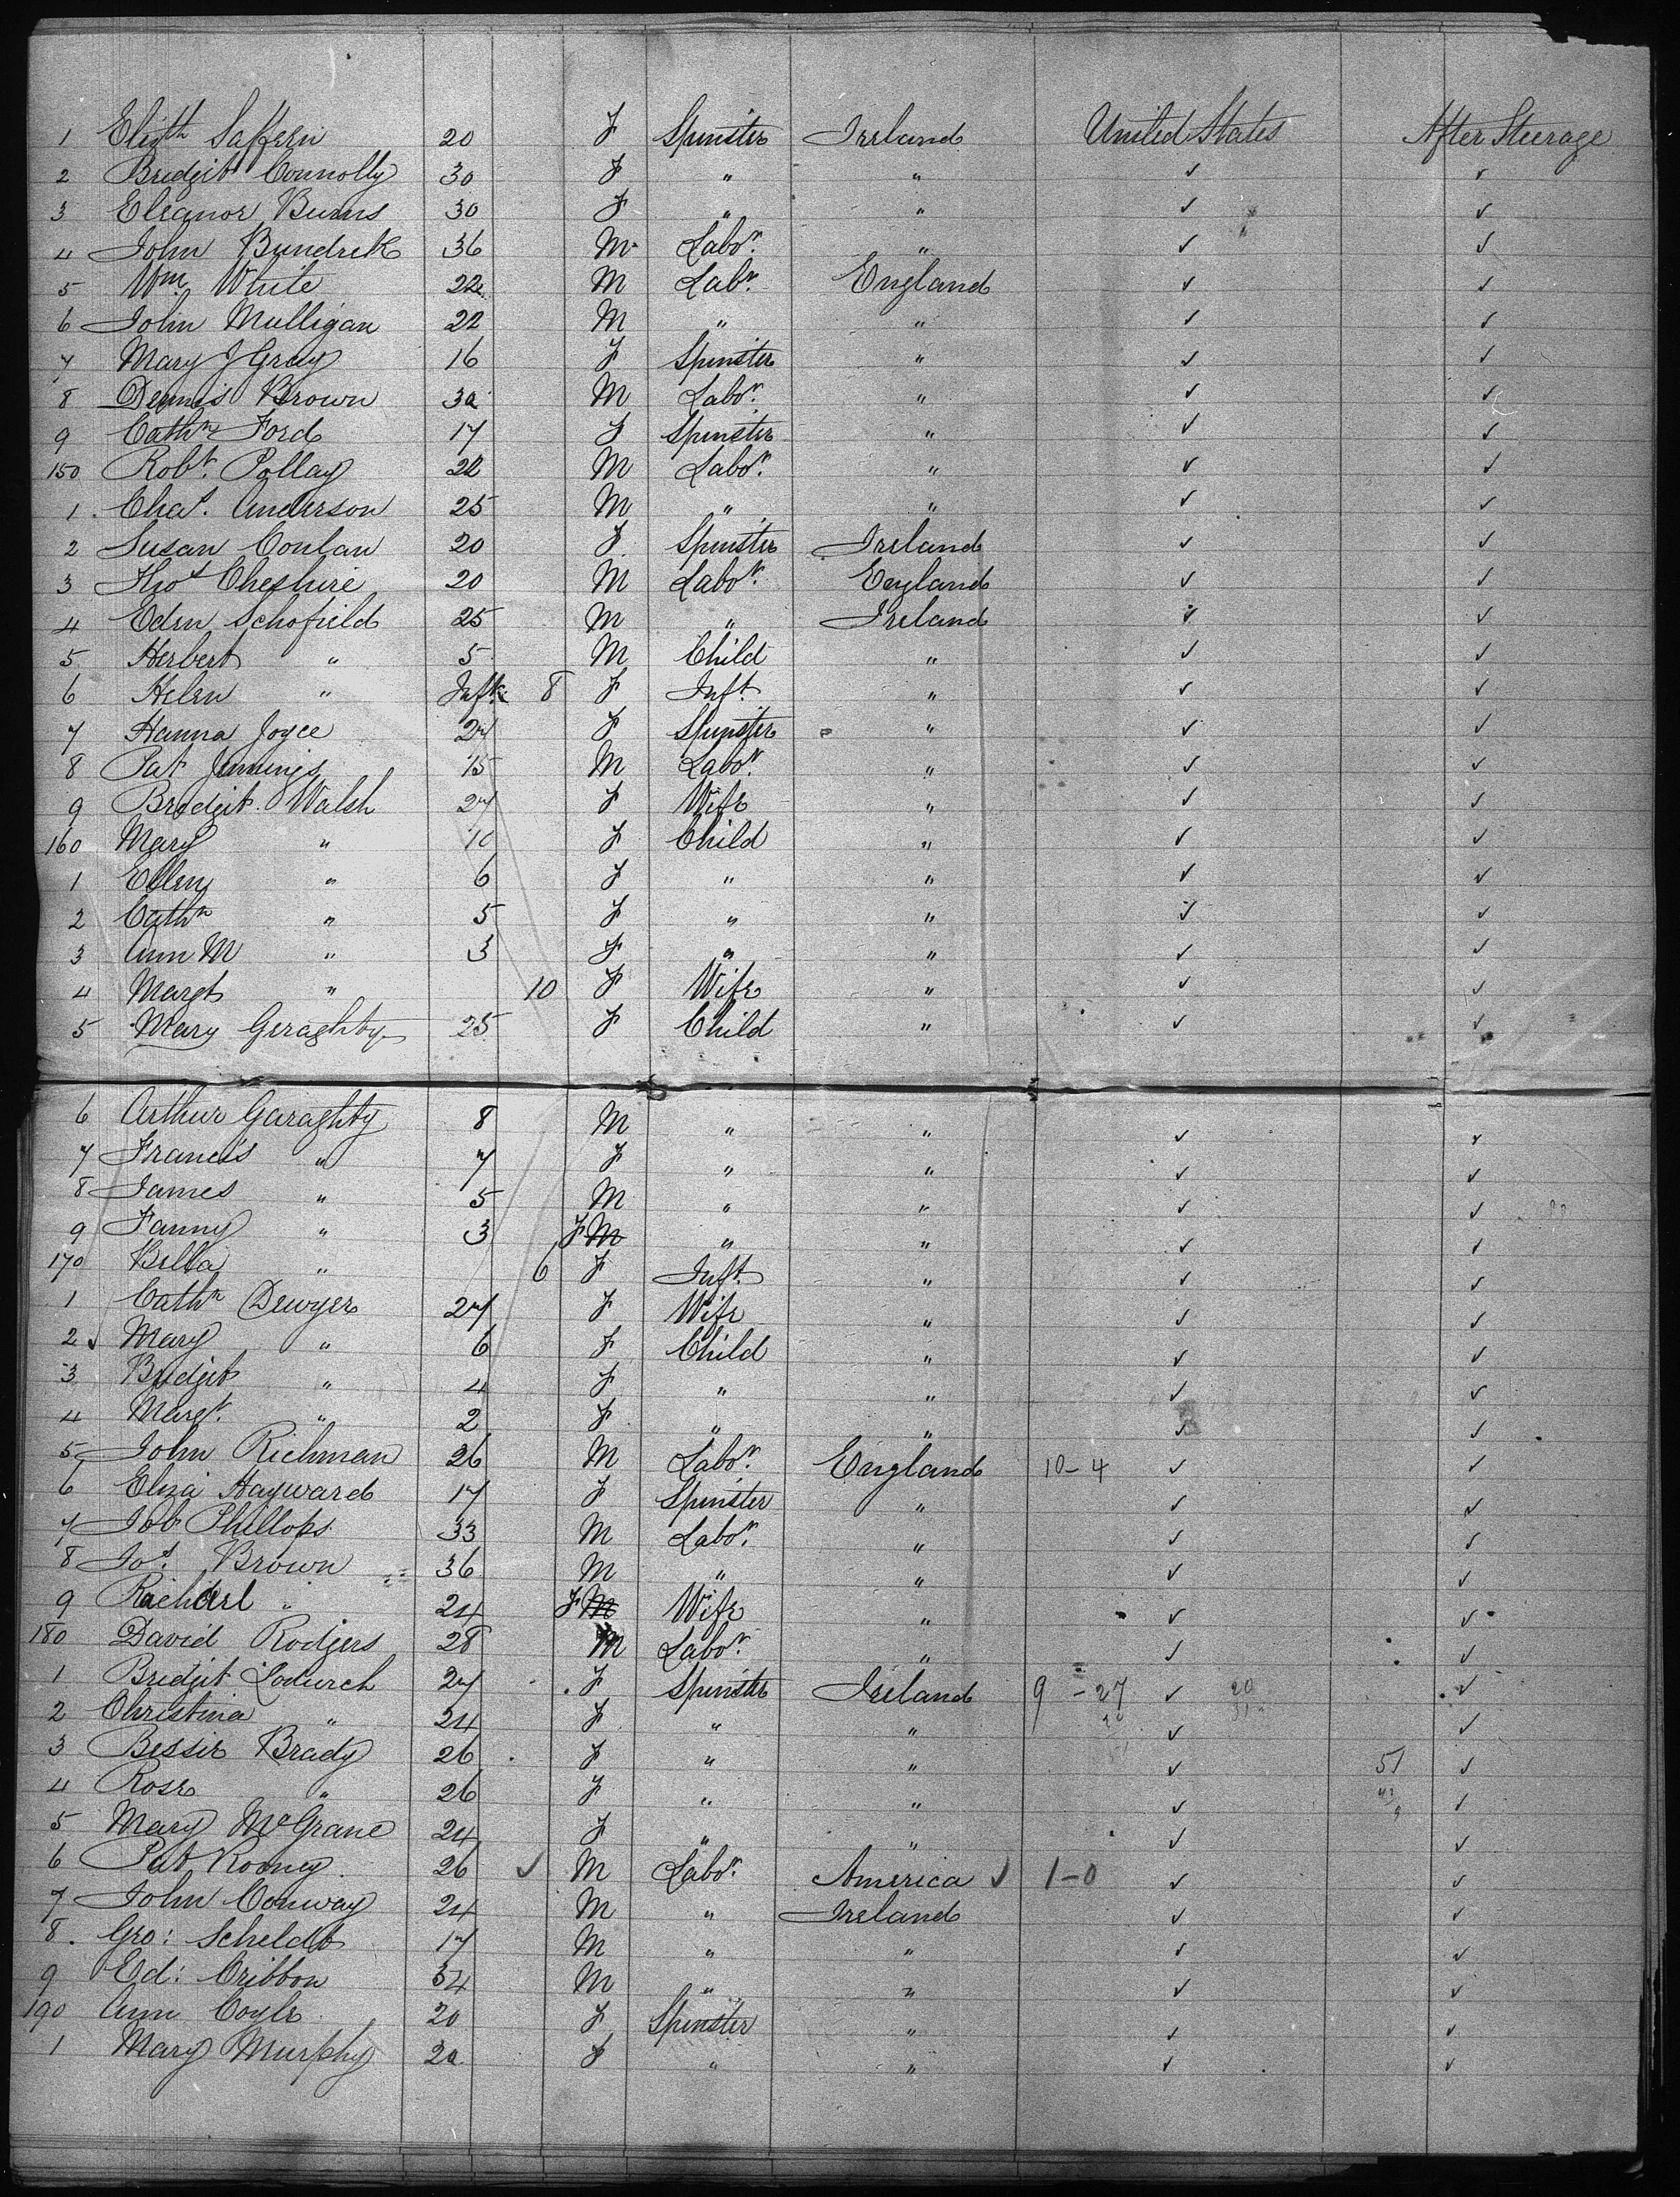 1 Elizth Saffern 20 F Spinster Ireland United States After Steerage
2 Bridgit Connolly 30 F " " ✓ ✓
3 Eleanor Burns 30 F " " ✓ ✓
4 John Bundrek 36 M Labor. " ✓ ✓
5 Wm. White 22 M Labr. England ✓ ✓
6 John Mulligan 22 M " " ✓ ✓
7 Mary J Gray 16 F Spinster " ✓ ✓
8 Dennis Brown 30 M Labor. " ✓ ✓
9 Cathn Ford 17 F Spinster " ✓ ✓
150 Robt. Pollay 22 M Labor. " ✓ ✓
1 Chas. Anderson 25 M " " ✓ ✓
2 Susan Conlan 20 F Spinster Ireland ✓ ✓
3 Thos Cheshire 20 M Labor. England ✓ ✓
4 Eden Schofield 25 M " Ireland ✓ ✓
5 Herbert " 5 M Child " ✓ ✓
6 Helen " Inft. 8 F Inft. " ✓ ✓
7 Hanna Joyce 27 F Spinster " ✓ ✓
8 Pat Jennings 15 M Labor. " ✓ ✓
9 Bridgit Walsh 27 F Wife " ✓ ✓
160 Mary " 10 F Child " ✓ ✓
1 Ellen " 6 F " " ✓ ✓
2 Cathn " 5 F " " ✓ ✓
3 Ann M " 3 F " " ✓ ✓
4 Margt " 10 F Wife " ✓ ✓
5 Mary Geraghty 25 F Child " ✓ ✓
6 Arthur Garaghty 8 M " " ✓ ✓
7 Francis " 7 F " " ✓ ✓
8 James " 5 M " " ✓ ✓
9 Fanny " 3 F M " " ✓ ✓
170 Bella " 6 F Inft. " ✓ ✓
1 Cathn Dewyer 27 F Wife " ✓ ✓
2 ✓ Mary " 6 F Child " ✓ ✓
3 Bridgit " 4 F " " ✓ ✓
4 Margt. " 2 F " " ✓ ✓
5 John Richman 26 M Labor. England 10-4 ✓ ✓
6 Eliza Hayward 17 F Spinster " ✓ ✓
7 Job Phillops 33 M Labor. " ✓ ✓
8 Jos. Brown 36 M " " ✓ ✓
9 Rachael " 24 F M Wife " ✓ ✓
180 David Rodgers 28 M Labor. " ✓ ✓
1 Bridgit Lodurch 27 F Spinster Ireland 9 - 27 ✓ 20 ✓
2 Christina " 24 F " " ✓ ✓
3 Bessie Brady 26 F " " ✓ 51 ✓
4 Rose " 26 F " " ✓ ✓
5 Mary McGrane 24 F " " ✓ ✓
6 Pat Rooney 26 ✓ M Labor. America ✓ 1-0 ✓ ✓
7 John Conway 24 M " Ireland ✓ ✓
8. Geo: Scheldt 17 M " " ✓ ✓
9 Ed: Cribbon 34 M " " ✓ ✓
190 Ann Coyle 20 F Spinster " ✓ ✓
1 Mary Murphy 20 F " " ✓ ✓